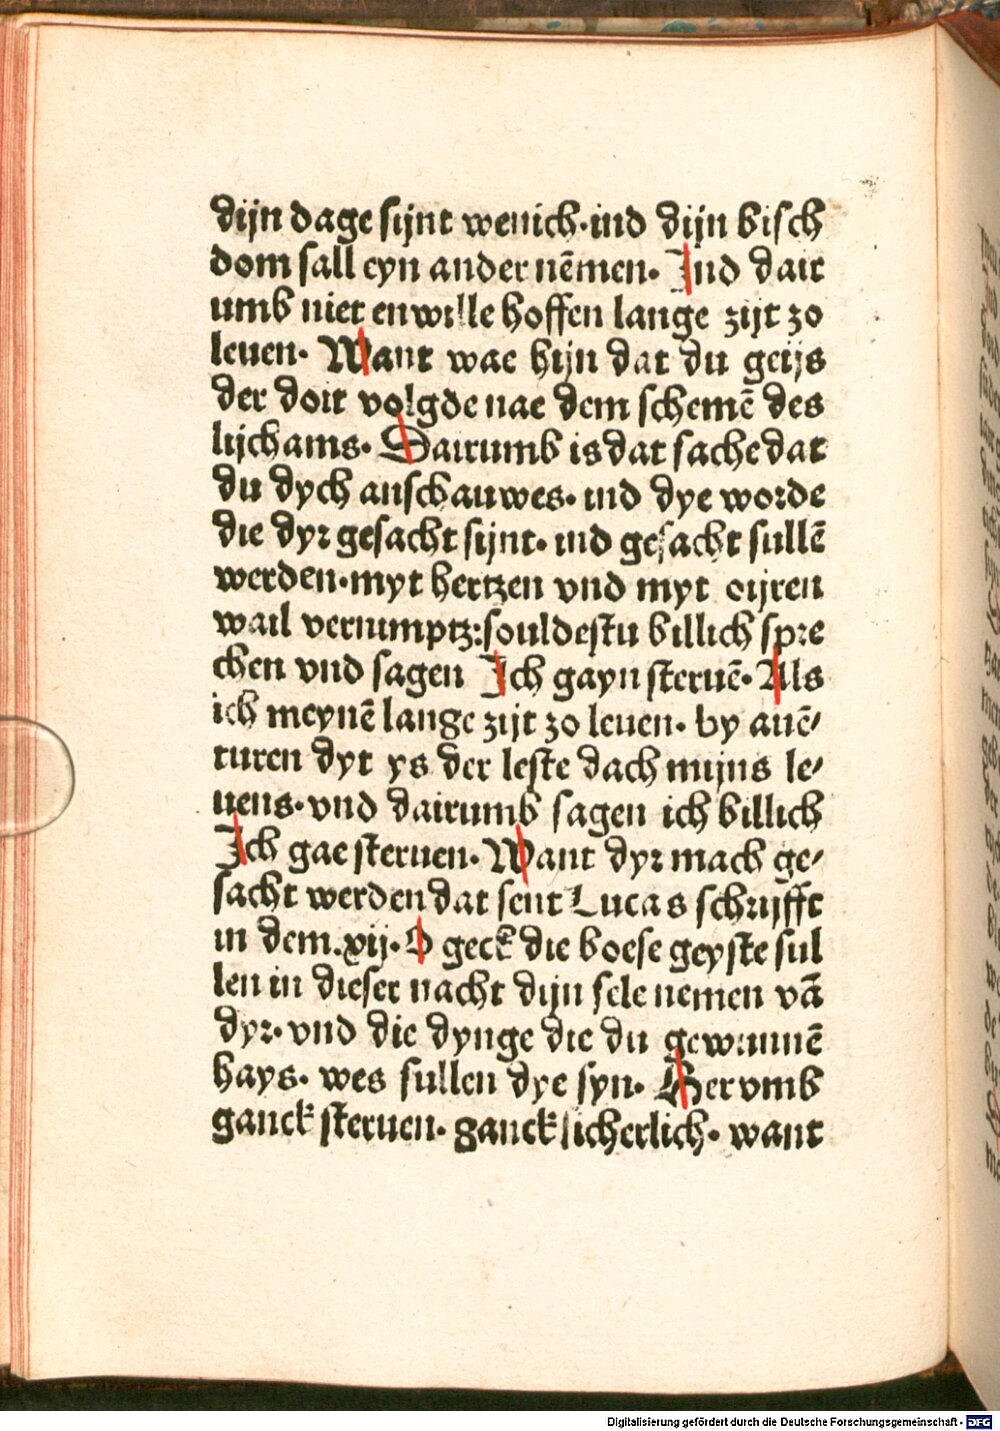 dijn dage sijnt wenich·ind dijn bisch
dom sall eyn ander nēmen· Ind dair
umb niet en wille hoffen lange zijt zo
leuen· Want wae hijn dat du geijs
der doit volgde nae dem schemē des
lijchams· Dairumb is dat sache dat
du dych anschauwes· ind dye worde
die dyr gesacht sijnt· ind gesacht sullē
werden·myt hertzen vnd myt oijren
wail vernimptz:souldestu billich spre
chen vnd sagen Ich gayn steruē· Als
ich meynē lange zijt zo leuen· by auē/
turen dyt ys der leste dach mijns le/
uens·vnd dairumb sagen ich billich
Ich gae steruen· Want dyr mach ge/
sacht werden dat sent Lucas schrijfft
in dem.xij· O geck die boese geyste sul
len in dieser nacht dijn sele nemen vā
dyr·vnd die dynge die du gewunnē
hays· wes sullen dye syn· Herumb
ganck steruen· ganck sicherlich· want
Digitalisierung gefördert durch die Deutsche Forschungsgemeinschaft - DFG